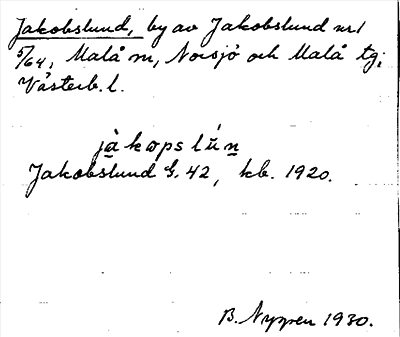 Jakobslund, by av Jakobslund nr 1
5/64, Malå sn, Norsjö och Malå tg;
Västerb. l.
jàkopslún
Jakobslund G. 42, kb. 1920.
B. Nyppen 1930.